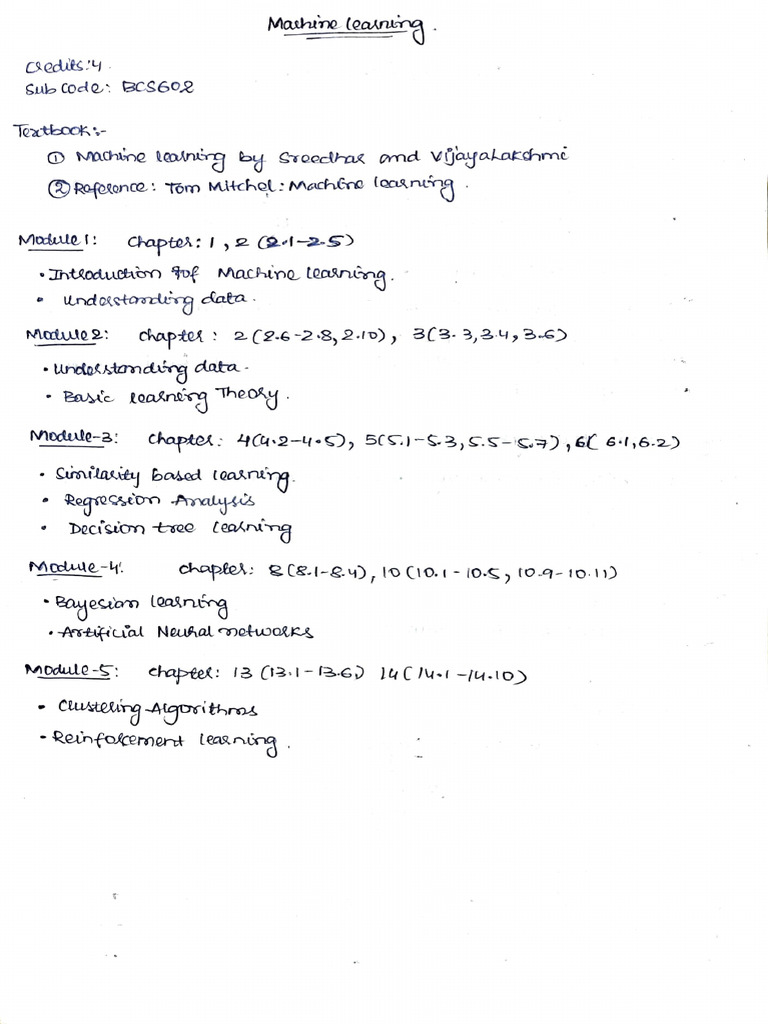 Machine learning.
Credits:4.
Sub Code: BCS602
Textbook:-
① Machine learning by Sreedhar and VijayaLakshmi
② Reference: Tom Mitchel: Machine learning.
Module1: Chapter: 1, 2 (2.1-2.5)
• Introduction of Machine learning.
• Understanding data.
Module2: Chapter: 2(2.6-2.8, 2.10), 3(3.3,3.4, 3.6)
• Understanding data.
• Basic learning Theory.
Module-3: Chapter: 4(4.2-4.5), 5(5.1-5.3, 5.5-5.7), 6( 6.1,6.2)
• Similarity based learning.
• Regression Analysis
• Decision tree learning
Module-4: Chapter: 8(8.1-8.4), 10(10.1-10.5, 10.9-10.11)
• Bayesian learning
• Artificial Neural networks
Module-5: Chapter: 13 (13.1-13.6) 14(14.1-14.10)
• Clustering Algorithms
• Reinforcement learning.